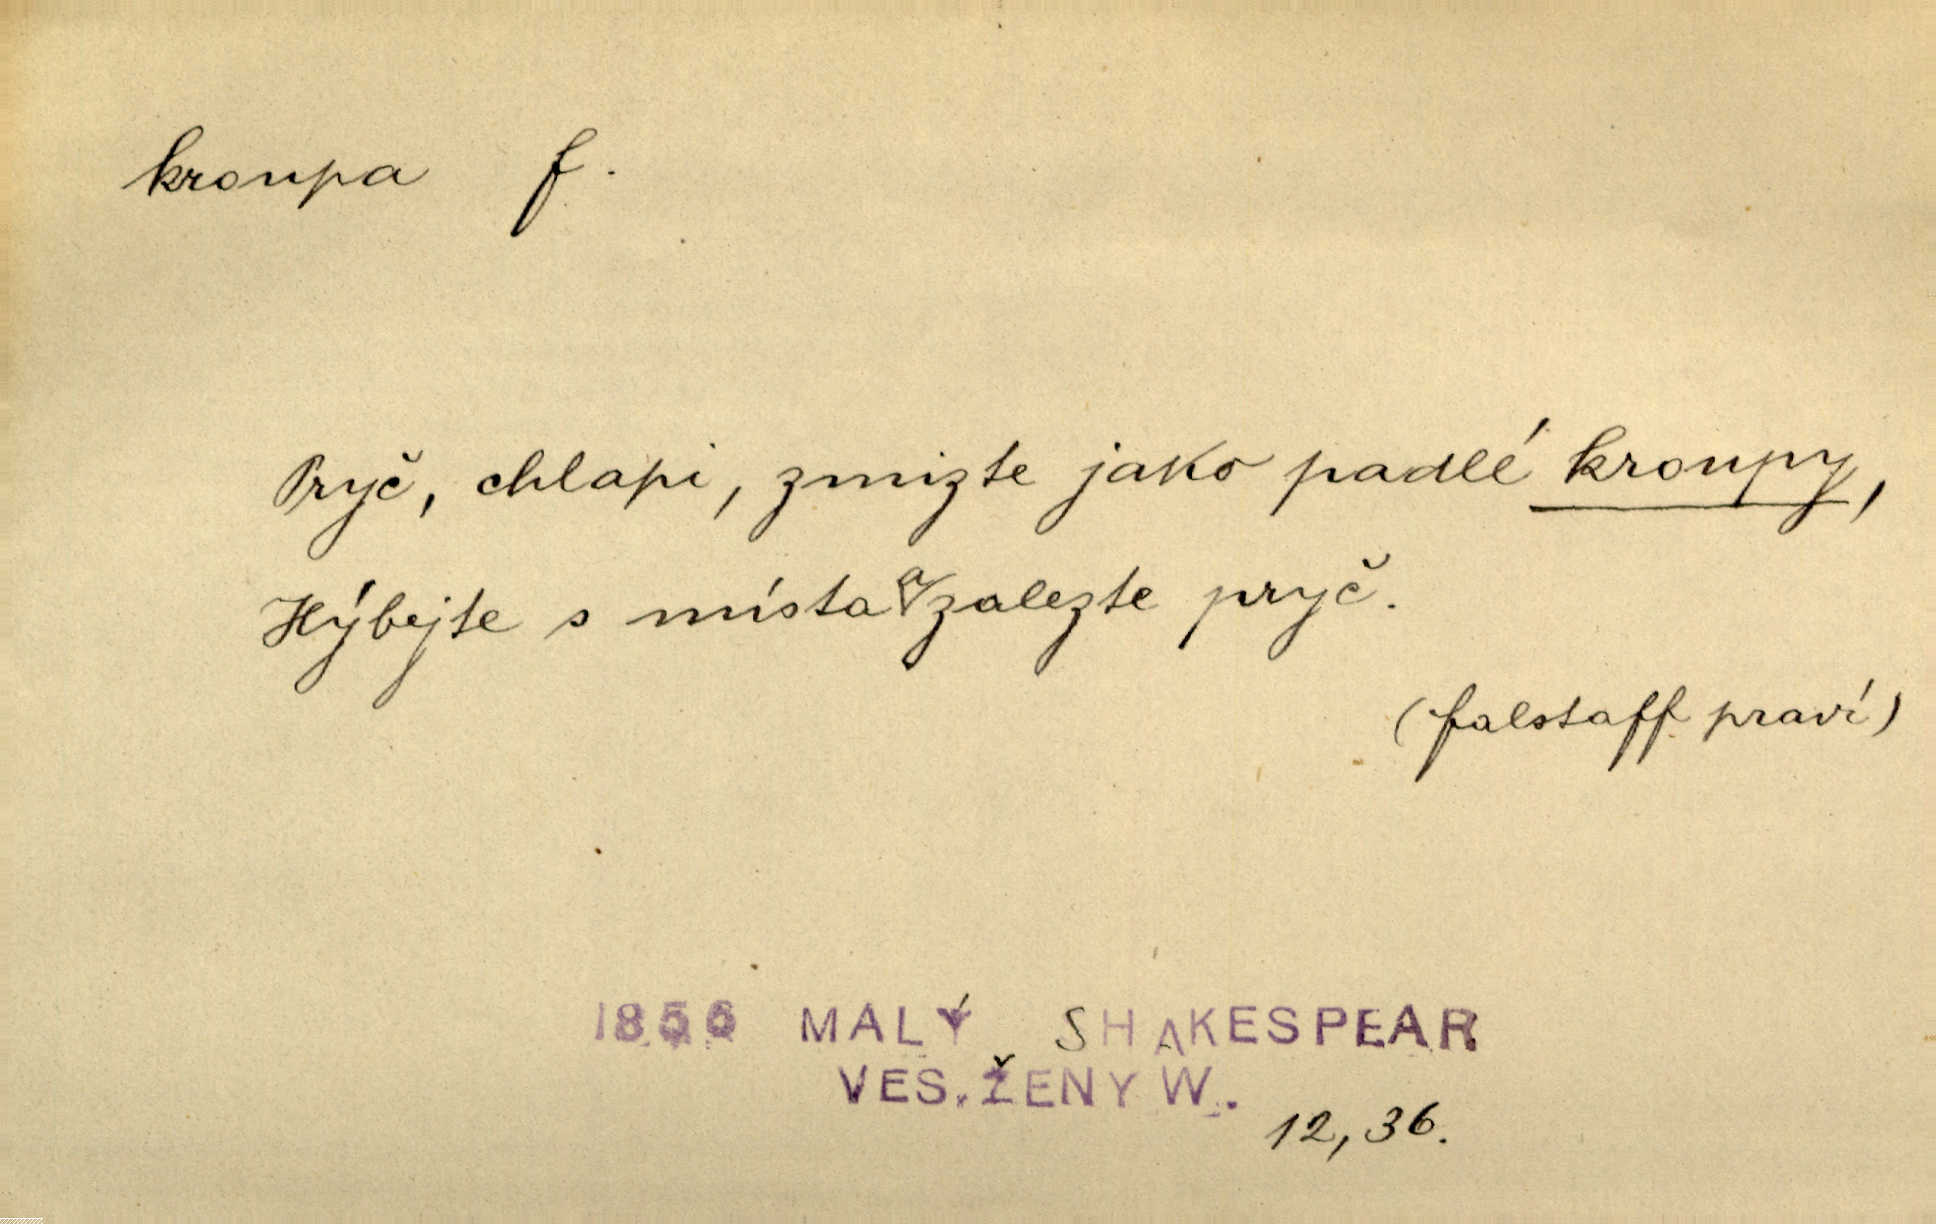 kroupa f.
Pryč, chlapi, zmizte jako padlé kroupy,
Hýbejte s místa a zalezte pryč.
(falstaff praví)
1856 MALÝ SHAKESPEAR
VES. ŽENY W.
12, 36.